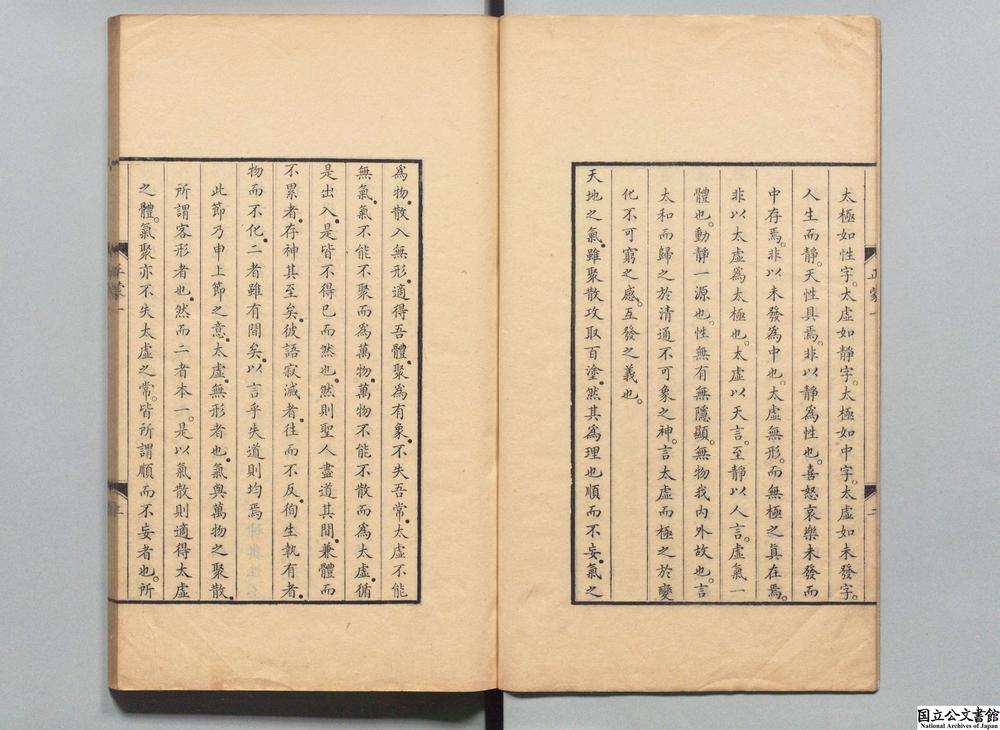 太極如性字。太虛如靜字。太極如中字。太虛如未發字。
人生而靜。天性具焉。非以靜為性也。喜怒哀樂未發而
中存焉。非以未發為中也。太虛無形。而無極之真在焉。
非以太虛為太極也。太虛以天言。至靜以人言。虛氣一
體也。動靜一源也。性無有無隱顯。無物我內外故也。言
太和而歸之於清通不可象之神。言太虛而極之於變
化不可窮之感。互發之義也。
天地之氣。雖聚散攻取百塗。然其為理也順而不妄。氣之
正蒙一
二
為物。散入無形。適得吾體。聚為有象。不失吾常。太虛不能
無氣。氣不能不聚而為萬物。萬物不能不散而為太虛。循
是出入。是皆不得已而然也。然則聖人盡道其間。兼體而
不累者。存神其至矣。彼語寂滅者。往而不反。徇生執有者。
物而不化。二者雖有間矣。以言乎失道則均焉
此節乃申上節之意。太虛。無形者也。氣與萬物之聚散。
所謂客形者也。然而二者本一。是以氣散則適得太虛
之體。氣聚亦不失太虛之常。皆所謂順而不妄者也。所
正蒙一
三
国立公文書館
National Archives of Japan